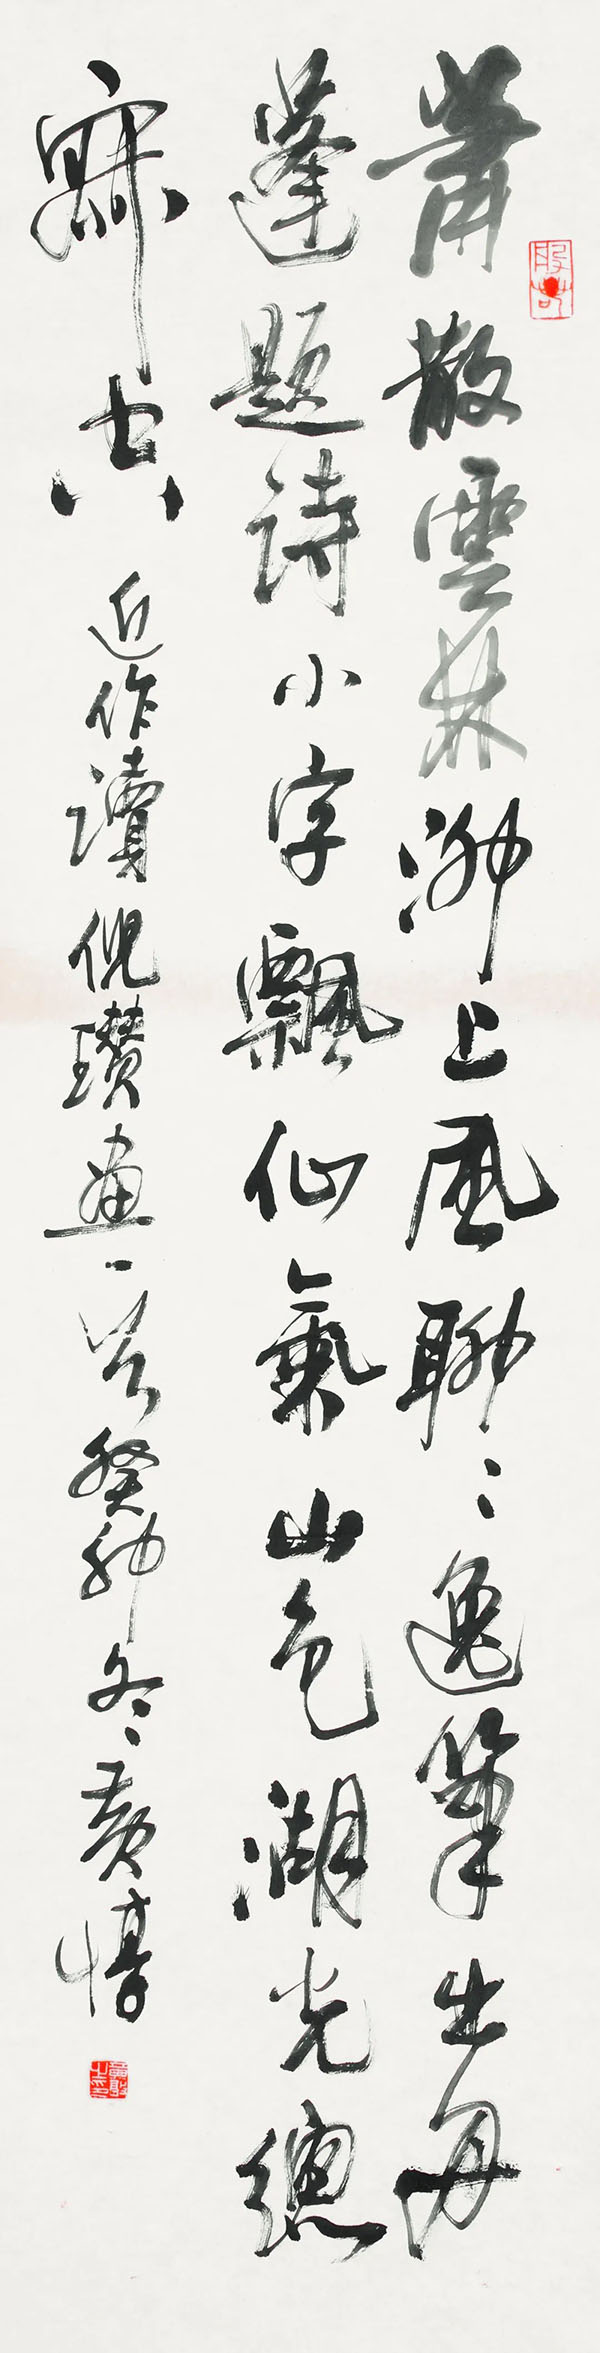 蕭散雲林泖上風聊〻逸筆出舟
蓬題詩小字飄仙氣山色湖光總
寂空 近作讀倪瓚畫一首癸卯冬黃惇